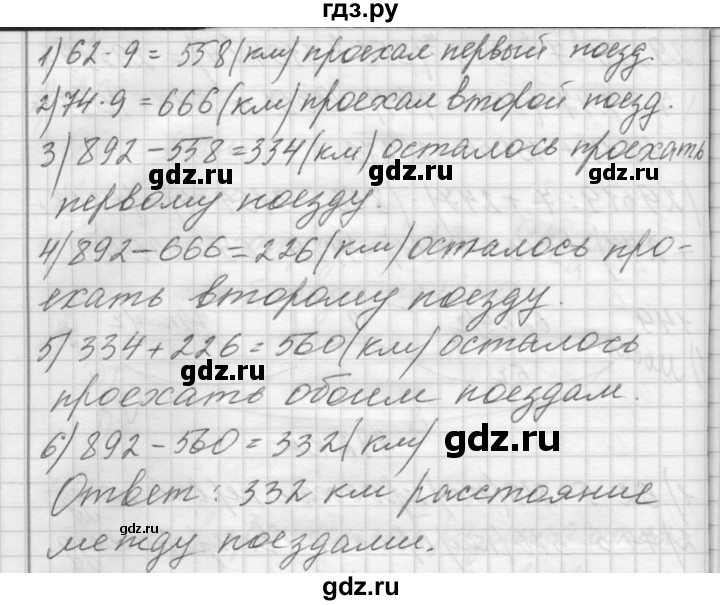 гдз.ру
1) 62 · 9 = 558 (км) проехал первый поезд.
2) 74 · 9 = 666 (км) проехал второй поезд.
3) 892 − 558 = 334 (км) осталось проехать
gdz.ru gdz.ru gdz.ru
первому поезду.
4) 892 − 666 = 226 (км) осталось про-
ехать второму поезду.
5) 334 + 226 = 560 (км) осталось
gdz.ru
проехать обоим поездам.
6) 892 − 560 = 332 (км)
gdz.ru
Ответ: 332 км расстояние
gdz.ru
между поездами.
gdz.ru